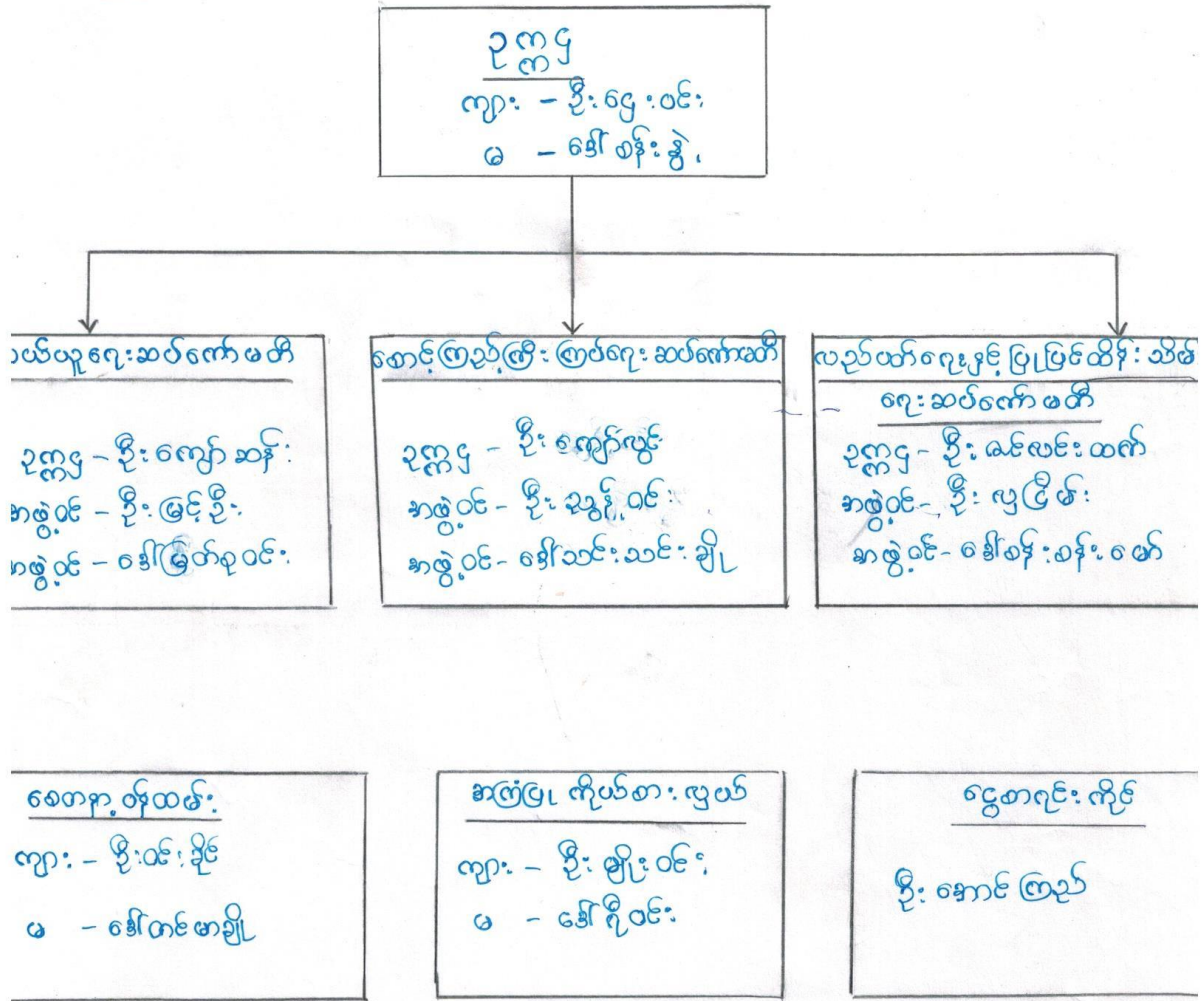 ဥက္ကဌ
ကျား - ဦးဌေးဝင်း
မ - ဒေါ်စန်းနွဲ့
ဝယ်ယူရေးဆပ်ကော်မတီ
ဥက္ကဌ - ဦးကျော်ဆန်း
အဖွဲ့ဝင် - ဦးမြင့်ဦး
အဖွဲ့ဝင် - ဒေါ်မြတ်စုဝင်း
စောင့်ကြည့်ကြီးကြပ်ရေးဆပ်ကော်မတီ
ဥက္ကဌ - ဦးကျော်လွင်
အဖွဲ့ဝင် - ဦးညွန့်ဝင်း
အဖွဲ့ဝင် - ဒေါ်သင်းသင်းချို
လည်ပတ်ရေးနှင့်ပြုပြင်ထိန်းသိမ်း
ရေးဆပ်ကော်မတီ
ဥက္ကဌ - ဦးဇင်လင်းထက်
အဖွဲ့ဝင် - ဦးလှငြိမ်း
အဖွဲ့ဝင် - ဒေါ်စန်းစန်းမော်
စေတနာ့ဝန်ထမ်း
ကျား - ဦးဝင်းခိုင်
မ - ဒေါ်တင်မာချို
အကြံပြုကိုယ်စားလှယ်
ကျား - ဦးမျိုးဝင်း
မ - ဒေါ်ရီဝင်း
ငွေစာရင်းကိုင်
ဦးအောင်ကြည်